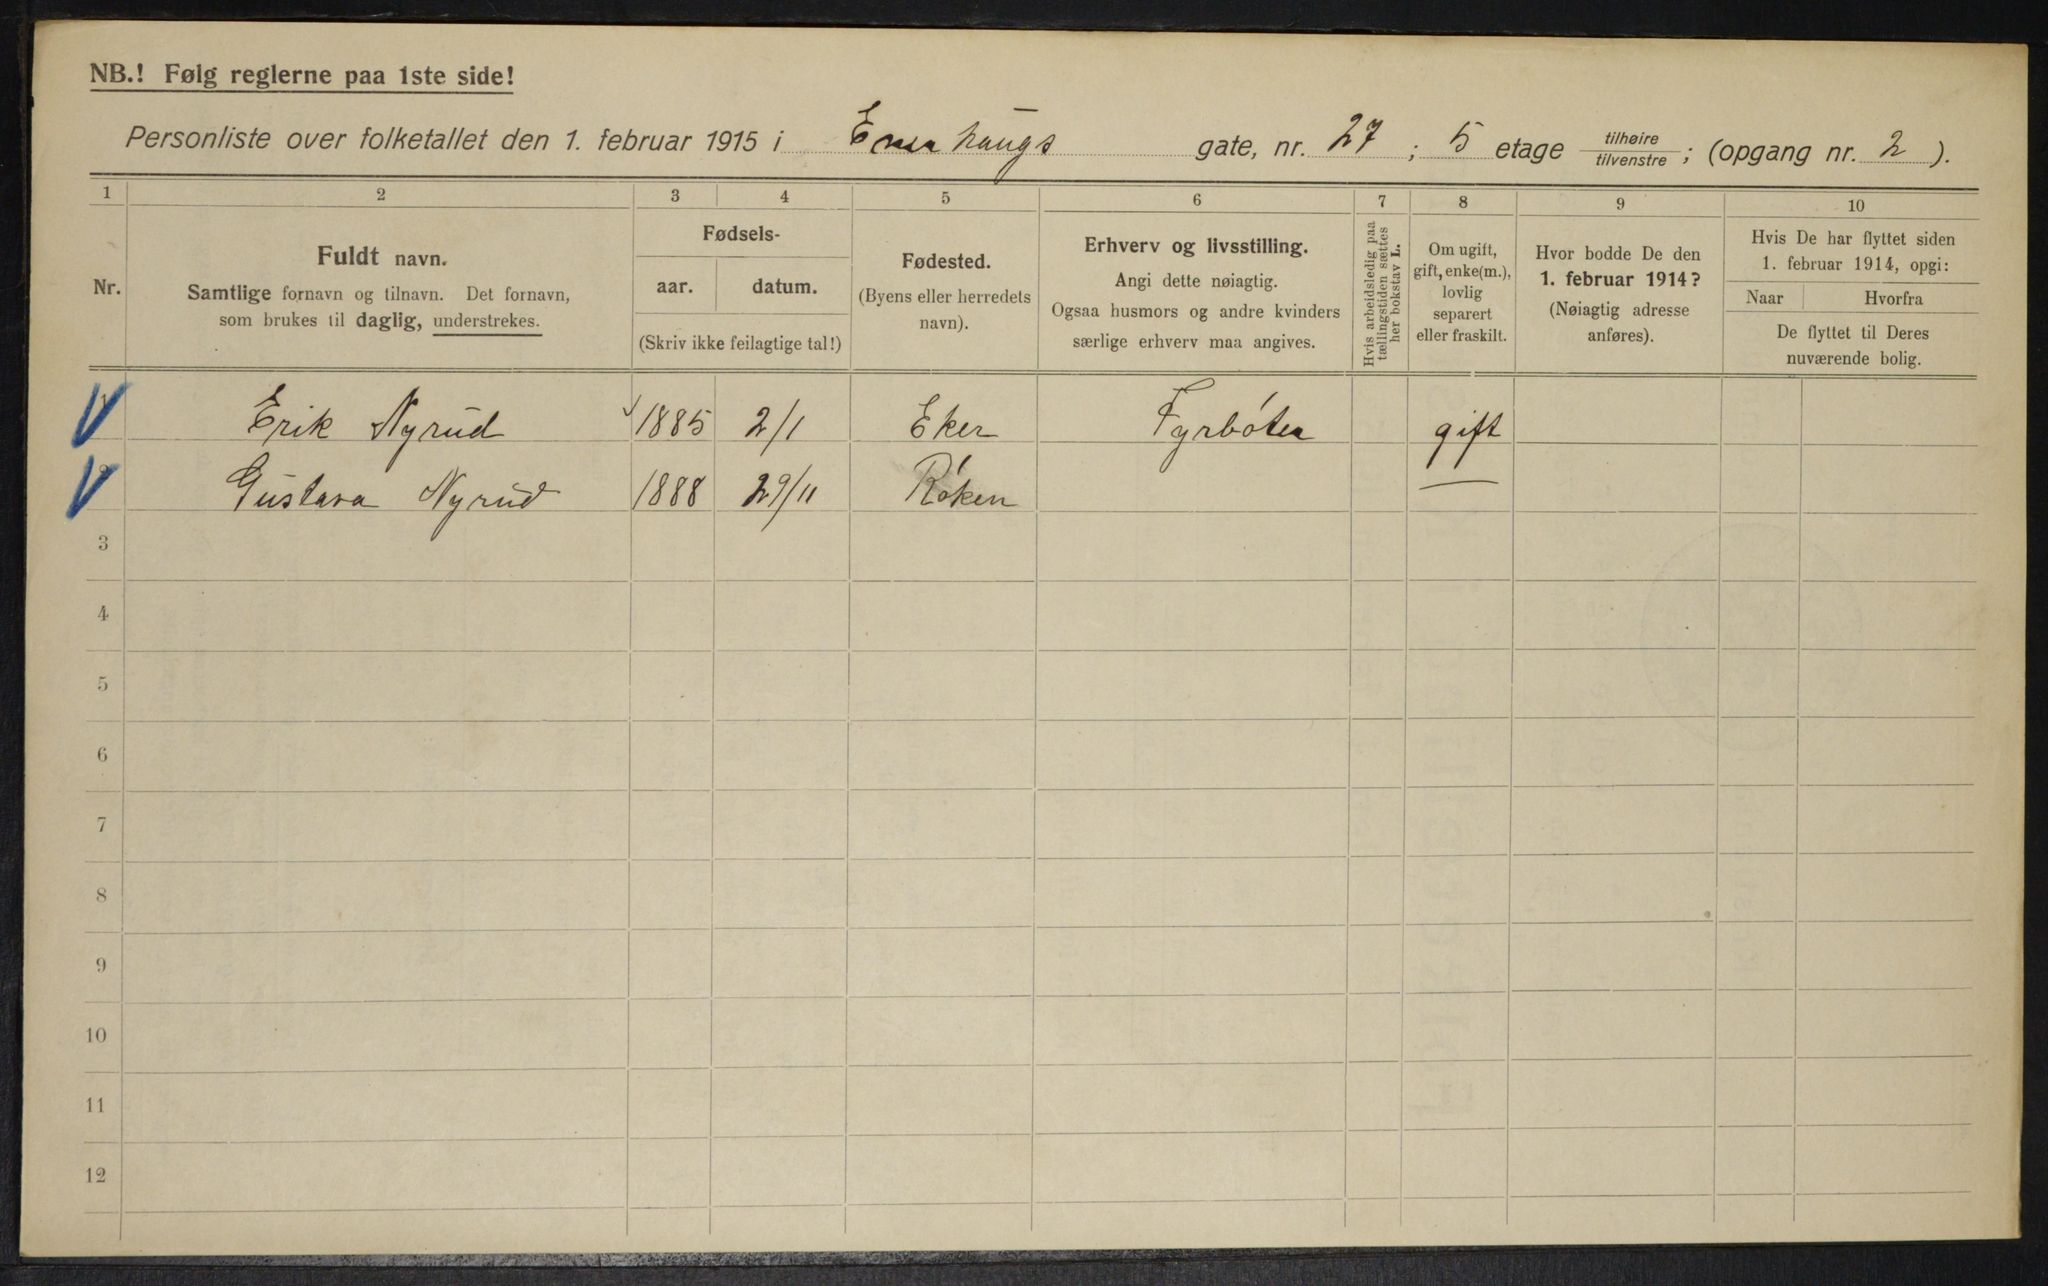 NB.! Følg reglerne paa 1ste side!
Personliste over folketallet den 1. februar 1915 i Enerhaugs gate, nr. 27 ; 5 etage tilhøire tilvenstre ; (opgang nr. 2 ).
1 2 3 4 5 6 7 8 9 10
Nr.
Fuldt navn.
Samtlige fornavn og tilnavn. Det fornavn,
som brukes til daglig, understrekes.
Fødsels-
aar. datum.
(Skriv ikke feilagtige tal!)
Fødested.
(Byens eller herredets
navn).
Erhverv og livsstilling.
Angi dette nøiagtig.
Ogsaa husmors og andre kvinders
særlige erhverv maa angives.
Hvis arbeidsledig paa
tællingstiden sættes
her bokstav L.
Om ugift,
gift, enke(m.),
lovlig
separert
eller fraskilt.
Hvor bodde De den
1. februar 1914?
(Nøiagtig adresse
anføres).
Hvis De har flyttet siden
1. februar 1914, opgi:
Naar Hvorfra
De flyttet til Deres
nuværende bolig.
1 Erik Nyrud 1885 2/1 Eker Fyrbøter gift
2 Gustava Nyrud 1888 29/11 Røken
3
4
5
6
7
8
9
10
11
12